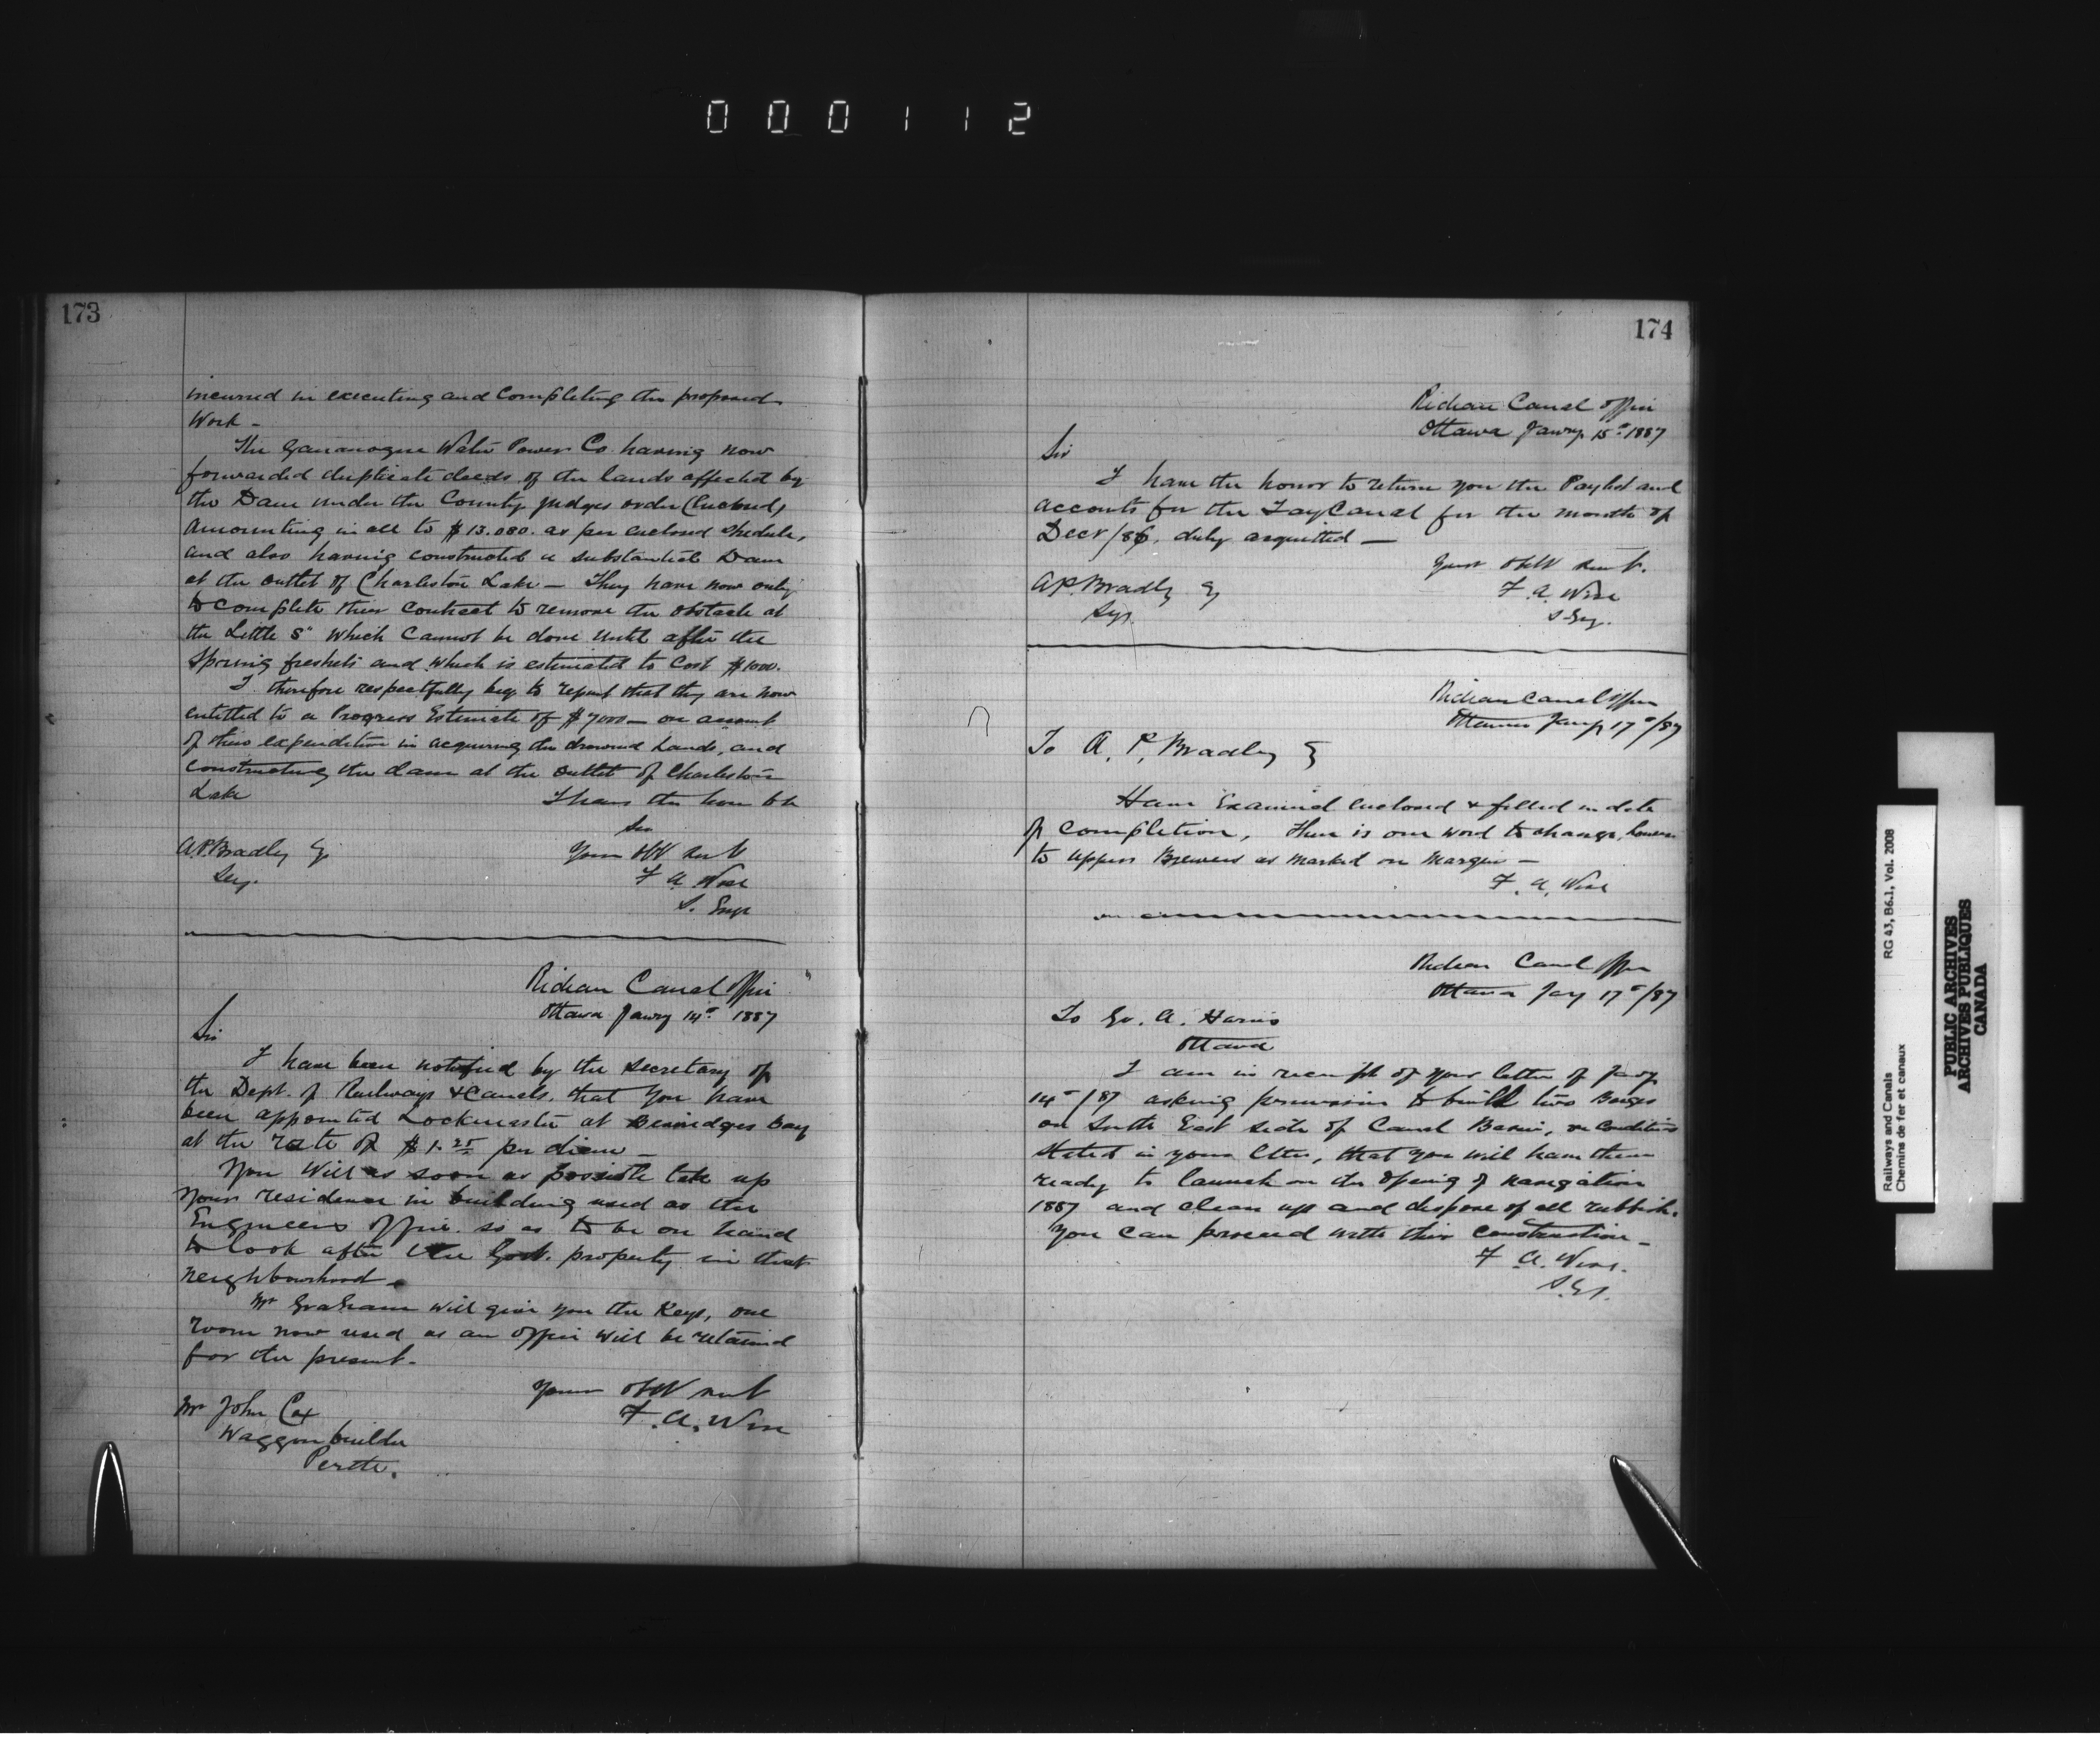 000112
173
incurred in executing and completing the proposed
Work -
The Gananoque Water Power Co. having now
forwarded duplicate deeds of the lands affected by
the Dam under the County Judges order (Enclosed)
amounting in all to $13.080. as per enclosed shedule,
and also having constructed a substantial Dam
at the outlet of Charleston Lake - They have now only
to complete their contract to remove the obstacle at
the Little S" which cannot be done until after the
Spring freshets and which is estimated to cost $1000.
I therefore respectfully beg to report that they are now
entitled to a Progress Estimate of $7000 - on account
of their expenditure in acquiring the drowned lands, and
constructing the dam at the outlet of Charleston
Lake
I have the honor to be
Sir
Your Obt Servt
F A Wise
S. Engr
A.P. Bradley Esq
Secy.
Rideau Canal Office
Ottawa Jany 14th 1887
Sir
I have been notified by the Secretary of
the Dept. of Railways & Canals, that you have
been appointed Lockmaster at Beveridges Bay
at the rate of $1.25 per diem -
You will as soon as possible take up
your residence in building used as the
Engineers office so as to be on hand
to look after the Govt. property in that
neighbourhood -
Mr Graham will give you the Keys, one
room now used as an office will be retained
for the present.
Yours Obt servt
F. A. Wise
Mr John Cox
Waggon builder
Perth.
174
Rideau Canal Office
Ottawa Jany 15th 1887
Sir
I have the honor to return you the Paylist and
accounts for the Tay Canal for the month of
Decr /86, duly acquitted -
Your Obt Servt.
F. A. Wise
S. Eng.
A.P. Bradley Esq
Secy.
Rideau Canal Office
Ottawa Jany 17th/87
To A. P. Bradley Esq
Have Examined enclosed & filled in date
of completion, There is one word to change, however
to Uppers Brewers as marked on margin -
F. A. Wise
Rideau Canal Office
Ottawa Jany 17th/87
To Geo. A. Harris
Ottawa
I am in receipt of your letter of Jany
14th/87 asking permission to build two Barges
on South East side of Canal Basin, on Conditions
stated in your letter, that you will have them
ready to launch on the opening of navigation
1887 and clean up and dispose of all rubbish.
You can proceed with this construction -
F. A. Wise.
S.E.
Railways and Canals
Chemins de fer et canaux
RG 43, B6.1, Vol. 2008
PUBLIC ARCHIVES
ARCHIVES PUBLIQUES
CANADA